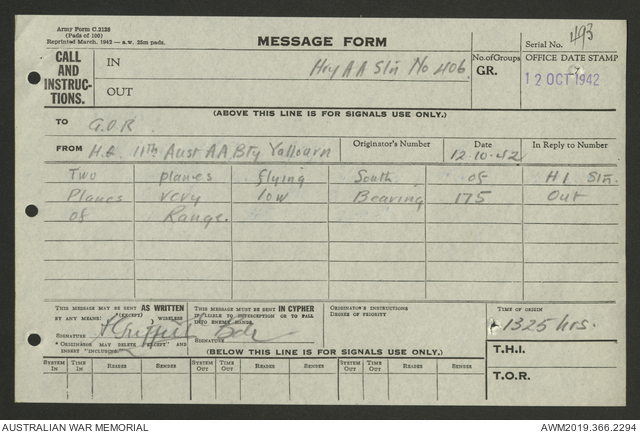 Army Form C.2128
(Pads of 100)
Reprinted March, 1942 — a.w. 25m pads.
MESSAGE FORM
Serial No. 493
CALL AND INSTRUC-TIONS.
IN
Hvy A A Stn No 406
OUT
No. of Groups
GR.
OFFICE DATE STAMP
12 OCT 1942
(ABOVE THIS LINE IS FOR SIGNALS USE ONLY.)
TO G.O.R
FROM 11th Aust AA Bty Yallourn
Originator's Number
Date
12-10-42
In Reply to Number
Two planes flying South of H1 Stn.
Planes very low Bearing 175 Out
of Range.
THIS MESSAGE MAY BE SENT AS WRITTEN
BY ANY MEANS (EXCEPT) WIRELESS
SIGNATURE
* ORIGINATOR MAY DELETE "EXCEPT" AND
INSERT "INCLUDING"
THIS MESSAGE MUST BE SENT IN CYPHER
IF LIABLE TO INTERCEPTION OR TO FALL
INTO ENEMY HANDS.
SIGNATURE
ORIGINATOR'S INSTRUCTIONS
DEGREE OF PRIORITY
TIME OF ORIGIN
1325 hrs.
T.H.I.
T.O.R.
(BELOW THIS LINE IS FOR SIGNALS USE ONLY.)
SYSTEM IN TIME IN READER SENDER SYSTEM OUT TIME OUT READER SENDER SYSTEM OUT TIME OUT READER SENDER
AUSTRALIAN WAR MEMORIAL
AWM2019.366.2294